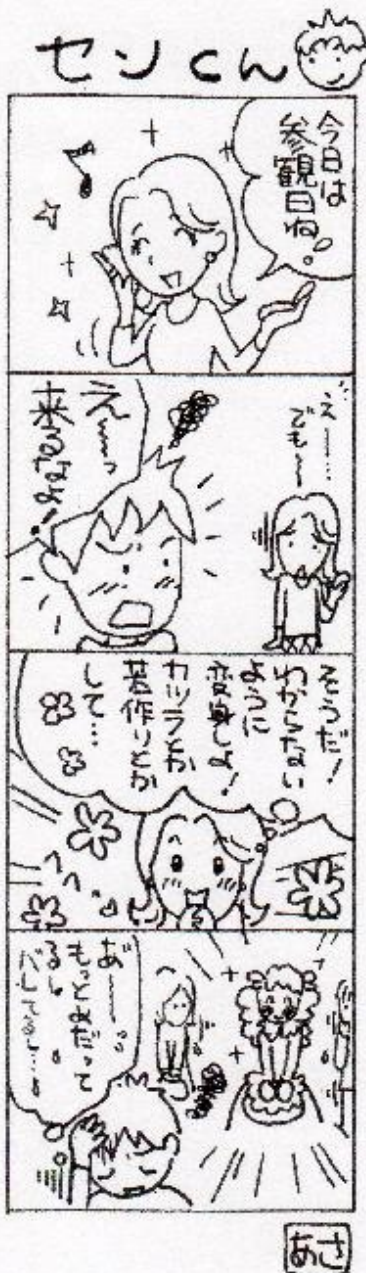 センくん
今日は
参観日ね
え〜……
でも〜
え〜〜っ
そうだ!
わからない
ように
変身しよ!
カツラとか
若作りとか
して…
あ〜〜
もっとめだって
るし
バレてるし…
あさ